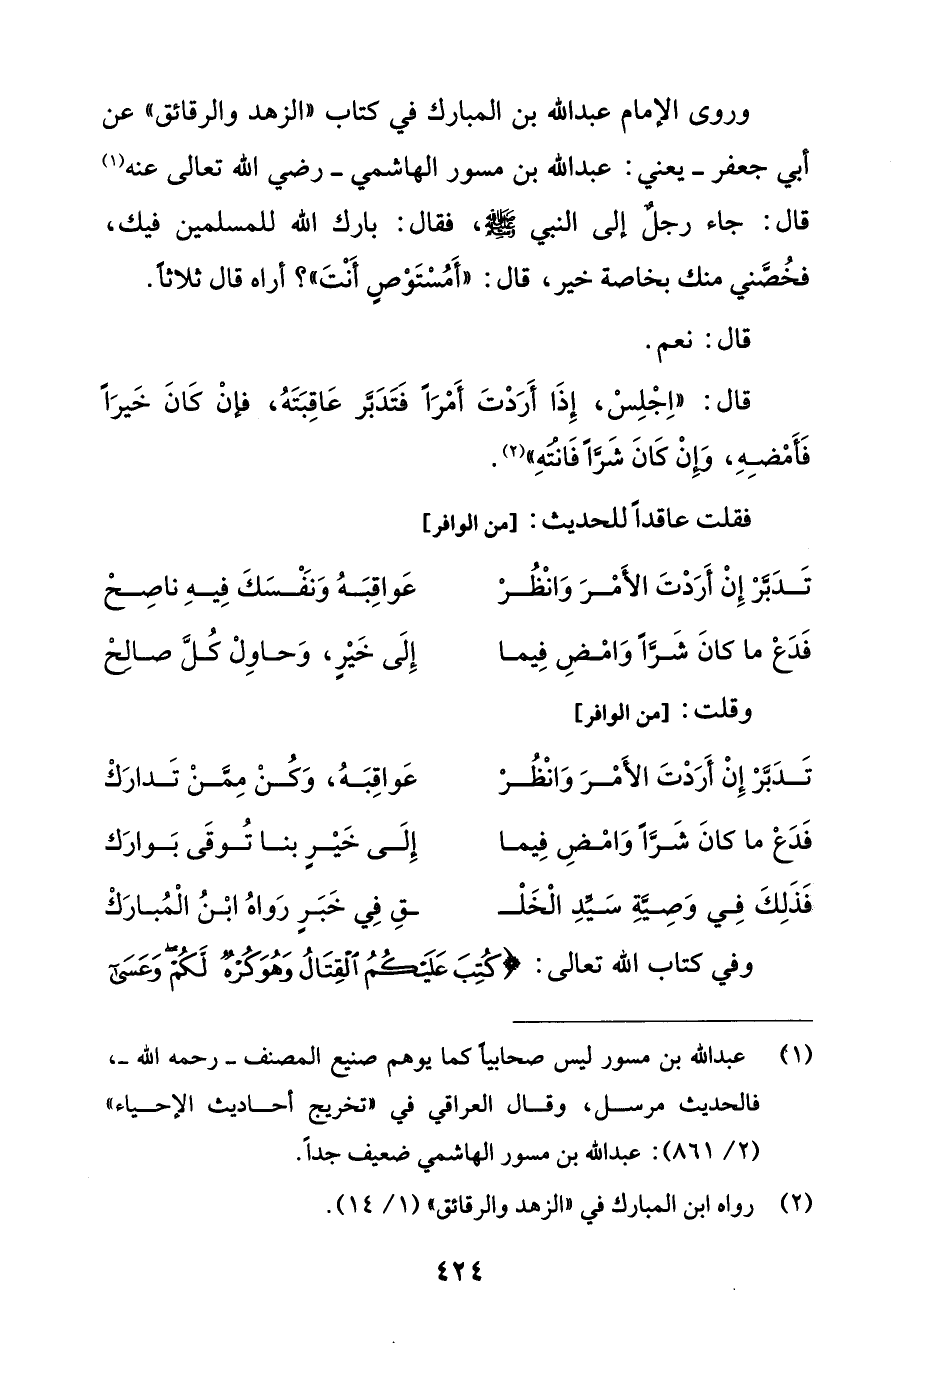 وروى الإمام عبدالله بن المبارك في كتاب «الزهد والرقائق» عن
أبي جعفر ـ يعني: عبدالله بن مسور الهاشمي ـ رضي الله تعالى عنه(١)
قال: جاء رجلٌ إلى النبي ﷺ، فقال: بارك الله للمسلمين فيك،
فخُصَّني منك بخاصة خير، قال: «أَمُسْتَوْصٍ أَنْتَ»؟ أراه قال ثلاثاً.
قال: نعم.
قال: «اِجْلِسْ، إِذَا أَرَدْتَ أَمْرَاً فَتَدَبَّر عَاقِبَتَهُ، فإنْ كَانَ خَيرَاً
فَأَمْضِهِ، وَإِنْ كَانَ شَرَّاً فَانْتَهِ»(٢).
فقلت عاقداً للحديث: [من الوافر]
تَدَبَّرْ إِنْ أَرَدْتَ الأَمْرَ وَانْظُرْ عَواقِبَهُ وَنَفْسَكَ فِيهِ ناصِحْ
فَدَعْ ما كانَ شَرَّاً وَامْضِ فِيما إِلَى خَيْرٍ، وَحاوِلْ كُلَّ صالِحْ
وقلت: [من الوافر]
تَدَبَّرْ إِنْ أَرَدْتَ الأَمْرَ وَانْظُرْ عَواقِبَهُ، وَكُنْ مِمَّنْ تَدارَكْ
فَدَعْ ما كانَ شَرَّاً وَامْضِ فِيما إِلَى خَيْرٍ بنا تُوقَى بَوارَكْ
فَذَلِكَ فِي وَصِيَّةِ سَيِّدِ الْخَلْـ ـقِ فِي خَبَرٍ رَواهُ ابْنُ الْمُبارَكْ
وفي كتاب الله تعالى: ﴿كُتِبَ عَلَيْكُمُ ٱلْقِتَالُ وَهُوَ كُرْهٌ لَكُمْ ۖ وَعَسَىٰٓ
(١) عبدالله بن مسور ليس صحابياً كما يوهم صنيع المصنف ـ رحمه الله ـ،
فالحديث مرسل، وقال العراقي في «تخريج أحاديث الإحياء»
(٢/ ٨٦١): عبدالله بن مسور الهاشمي ضعيف جداً.
(٢) رواه ابن المبارك في «الزهد والرقائق» (١/ ١٤).
٤٢٤